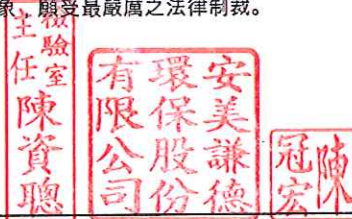 象,願受最嚴厲之法律制裁。
檢驗室
主任陳資聰
安美謙德
環保股份
有限公司
陳冠宏